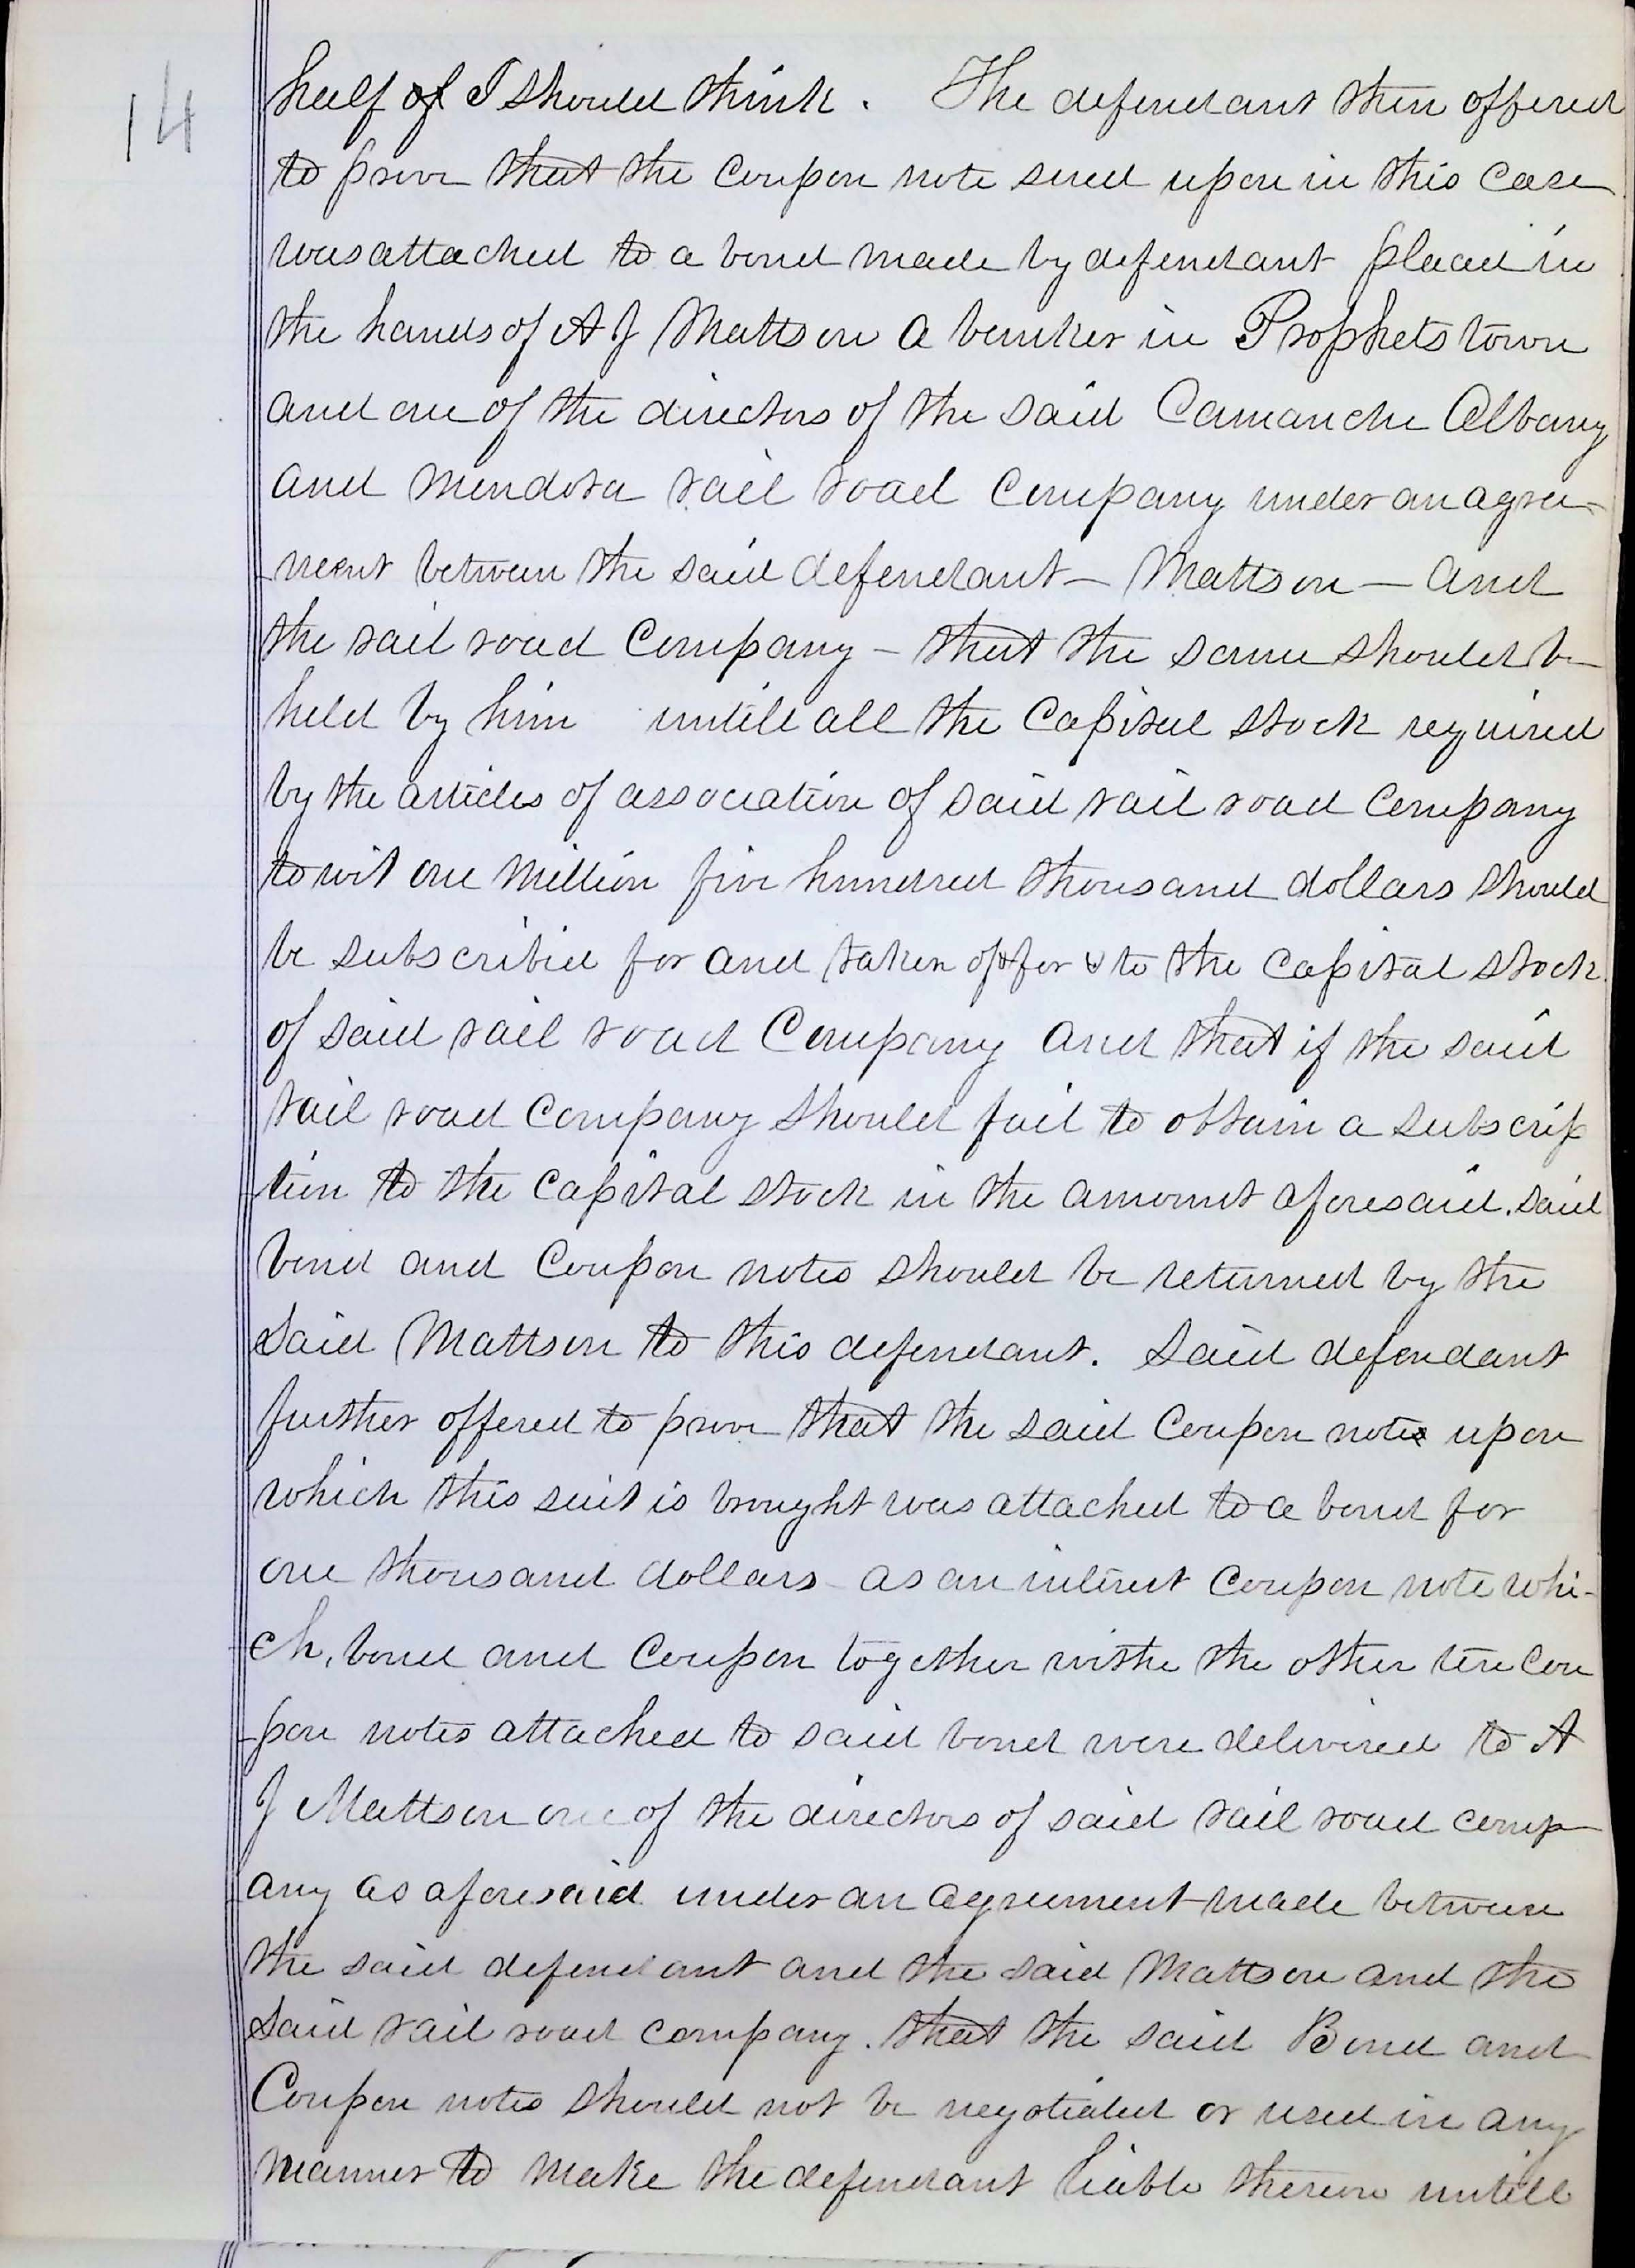 14
half of I should think. The defendant then offered
to prove that the Coupon note sued upon in this case
was attached to a bond made by defendant placed in
the hands of A J Mattson a banker in Prophetstown
and one of the directors of the said Camanche Albany
and Mendota rail road Company under an agree-
-ment between the said defendant – Mattson – and
the rail road Company – that the same should be
held by him untill all the Capital stock required
by the articles of association of said rail road Company
to wit one Million five hundred thousand dollars should
be subscribed for and taken of for & to the Capital stock
of said rail road Company and that if the said
rail road Company should fail to obtain a subscrip
tion to the Capital stock in the amount aforesaid, said
bond and Coupon notes should be returned by the
said Mattson to this defendant. Said defendant
further offered to prove that the said Coupon note upon
which this suit is brought was attached to a bond for
one thousand dollars as an interest Coupon note whi-
ch, bond and Coupon together withe the other ten Cou
-pon notes attached to said bond were delivered to A
J Mattson one of the directors of said rail road comp
any as aforesaid under an agreement made between
the said defendant and the said Mattson and the
said rail road company. that the said Bond and
Coupon notes should not be negotiated or used in any
manner to make the defendant liable thereon untill